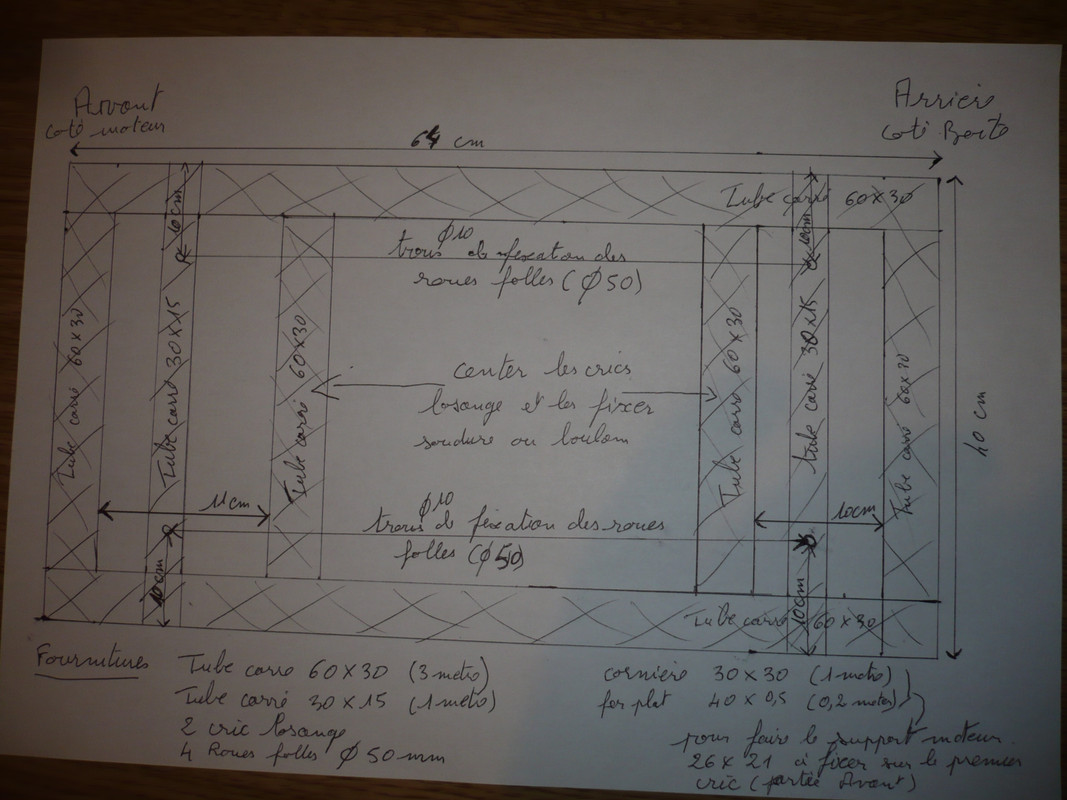 Avant
coté moteur
Arriere
coté Boite
64 cm
Tube carré 60x30
10cm
10cm
Ø10
trous de fixation des
roues folles (Ø50)
Tube carré 60x30
Tube carré 30x15
Tube carré 60x30
center les crics
losange et les fixer
soudure ou boulom
Tube carré 60x30
tube carré 30x15
Tube carré 60x30
40 cm
11cm
10cm
Ø10
trous de fixation des roues
folles (Ø50)
10cm
10cm
Tube carré 60x30
Fournitures
Tube carré 60x30 (3 metre)
Tube carré 30x15 (1 metre)
2 cric losange
4 Roues folles Ø 50 mm
corniere 30x30 (1 metre)
fer plat 40x0,5 (0,2 metre)
pour faire le support moteur
26x21 à fixer sur le premier
cric (partie Avant)